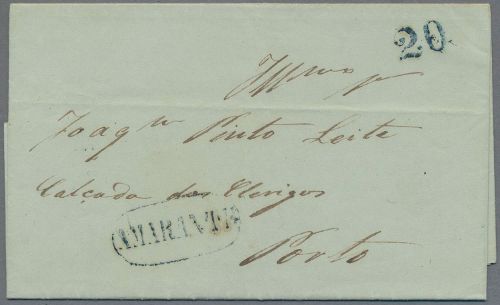 20
Illmo Sr
Joaqm Pinto Leite
Calçada dos Clerigos
AMARANTE
Porto